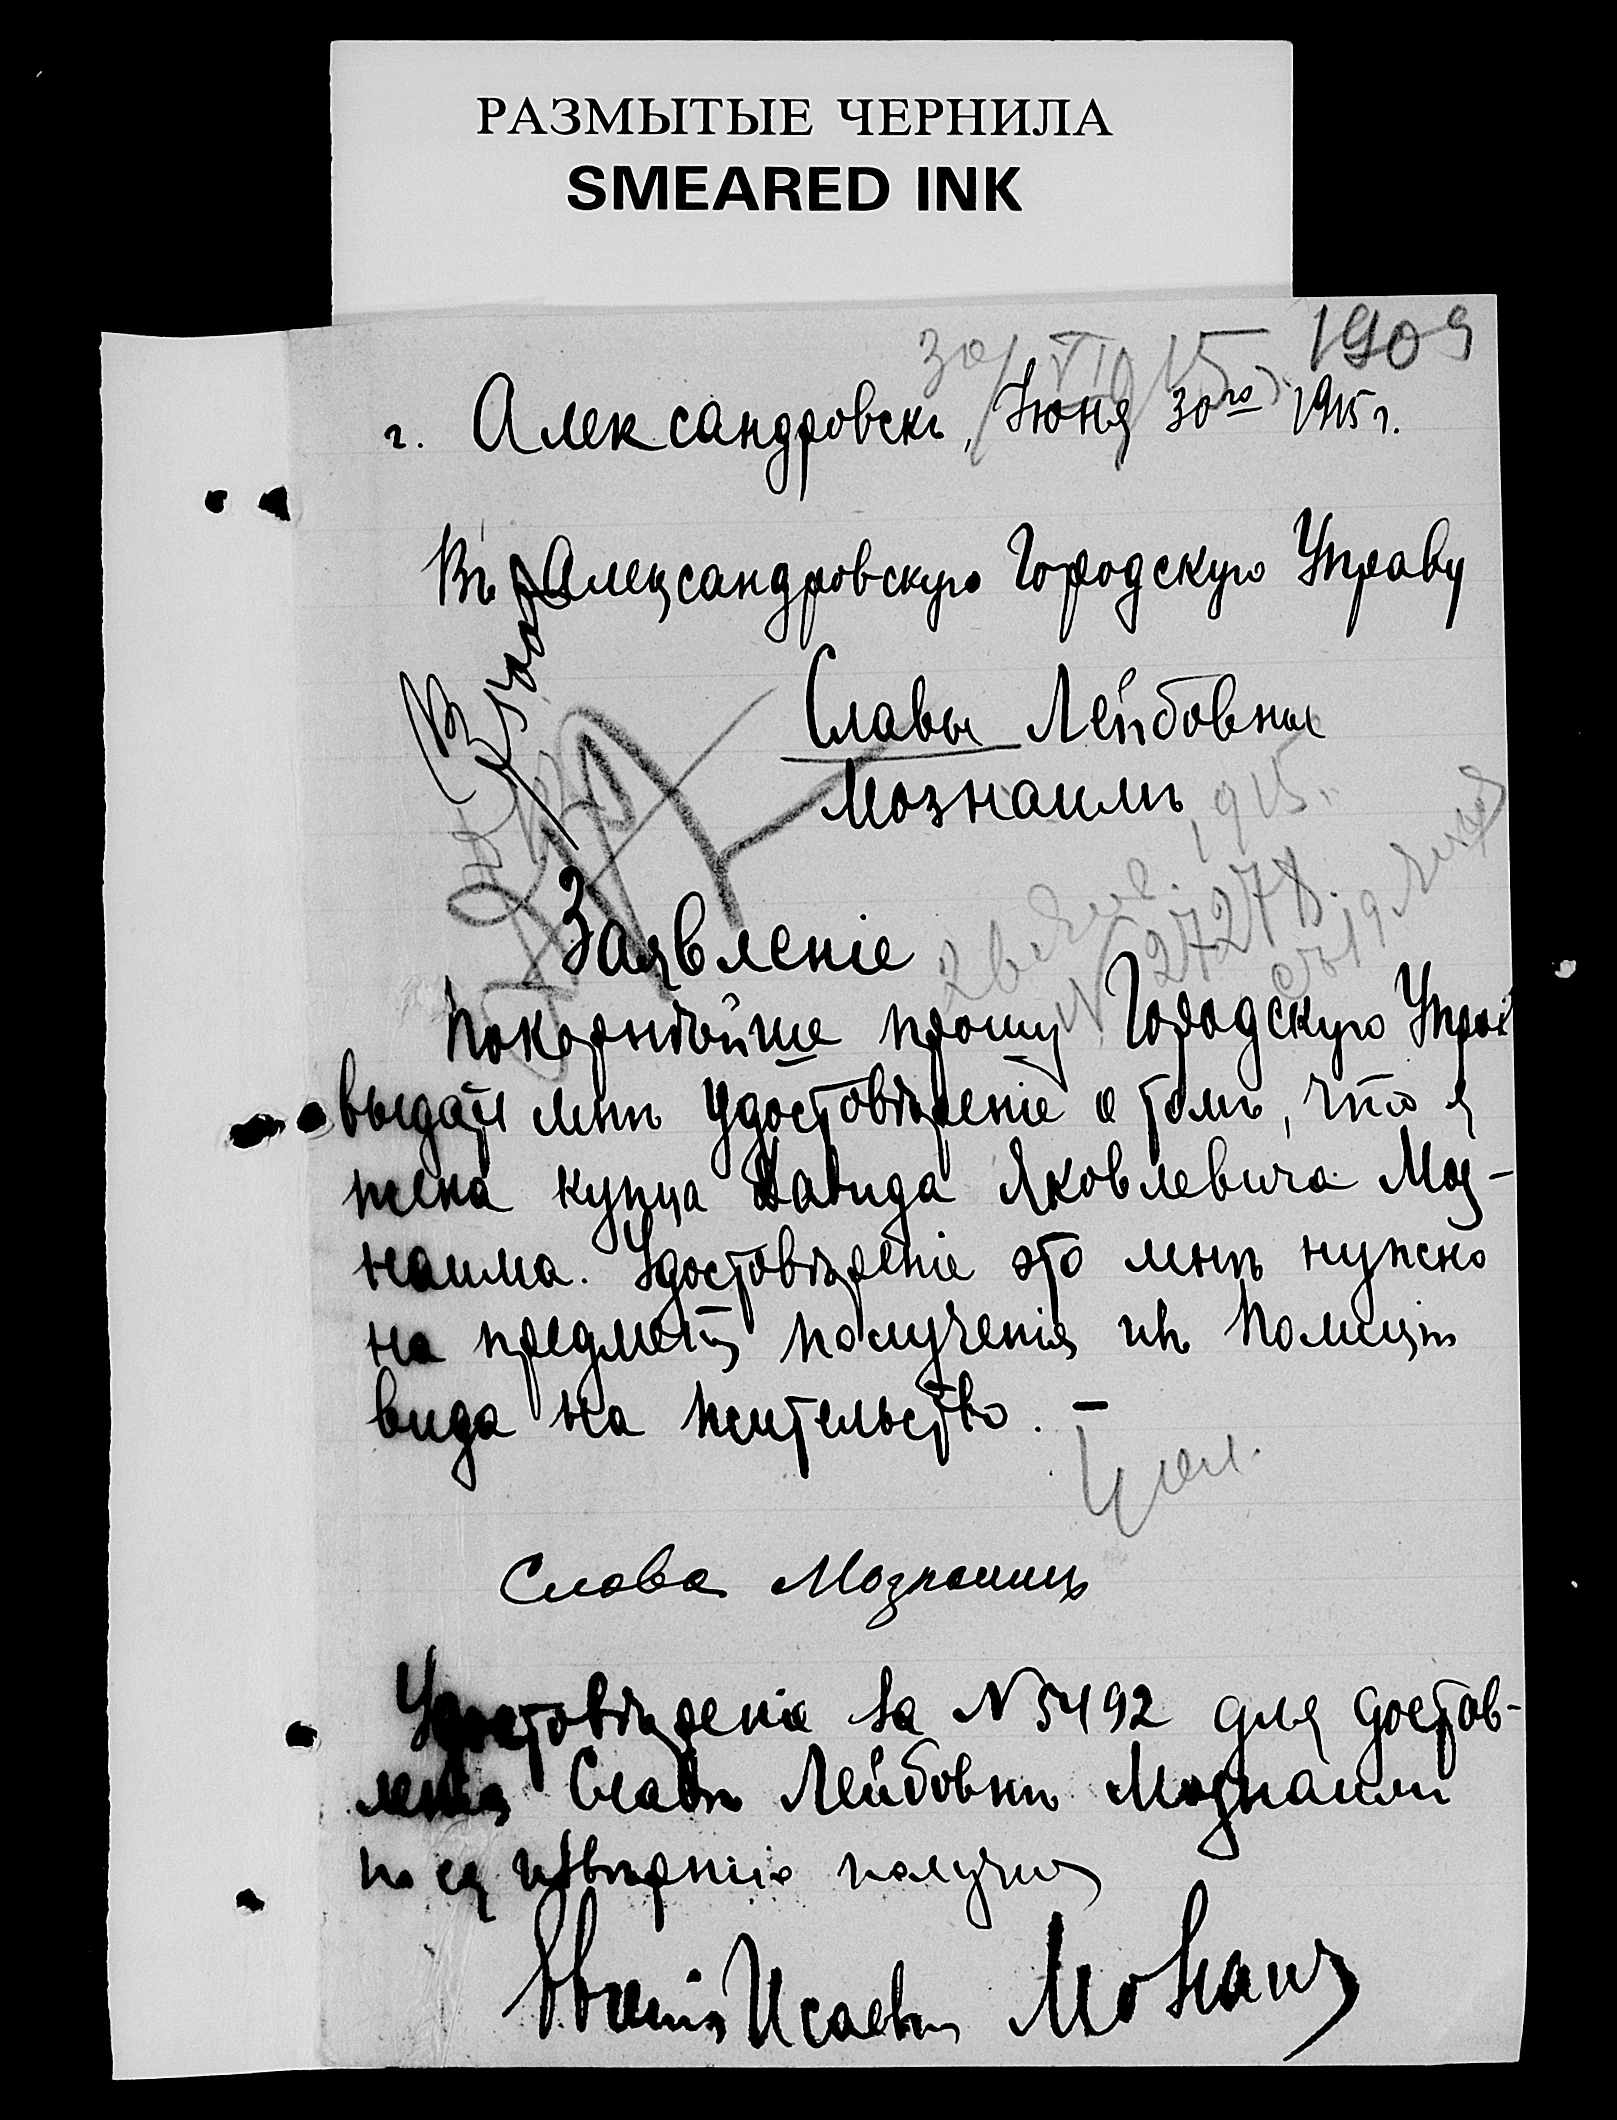 РАЗМЫТЫЕ ЧЕРНИЛА
SMEARED INK
1909
30/VII 15
г. Александровскъ, Июня 30го 1915 г.
Въ Александровскую Городскую Управу
Славы Лейбовны
Мознаимъ
1915
№ 27278.
Заявленіе
Покорнѣйше прошу Городскую Управ
выдать мнѣ удостовѣреніе о томъ, что я
жена купца Давида Яковлевича Моз-
наима. Удостовѣреніе это мнѣ нужно
на предметъ полученія изъ Полиціи
вида на жительство. –
Слава Мознаимъ
Удостовѣреніе за № 5492 для достав-
ленія Славѣ Лейбовнѣ Мознаимъ
по ея довѣрію получилъ
Исаевичъ Мознаимъ